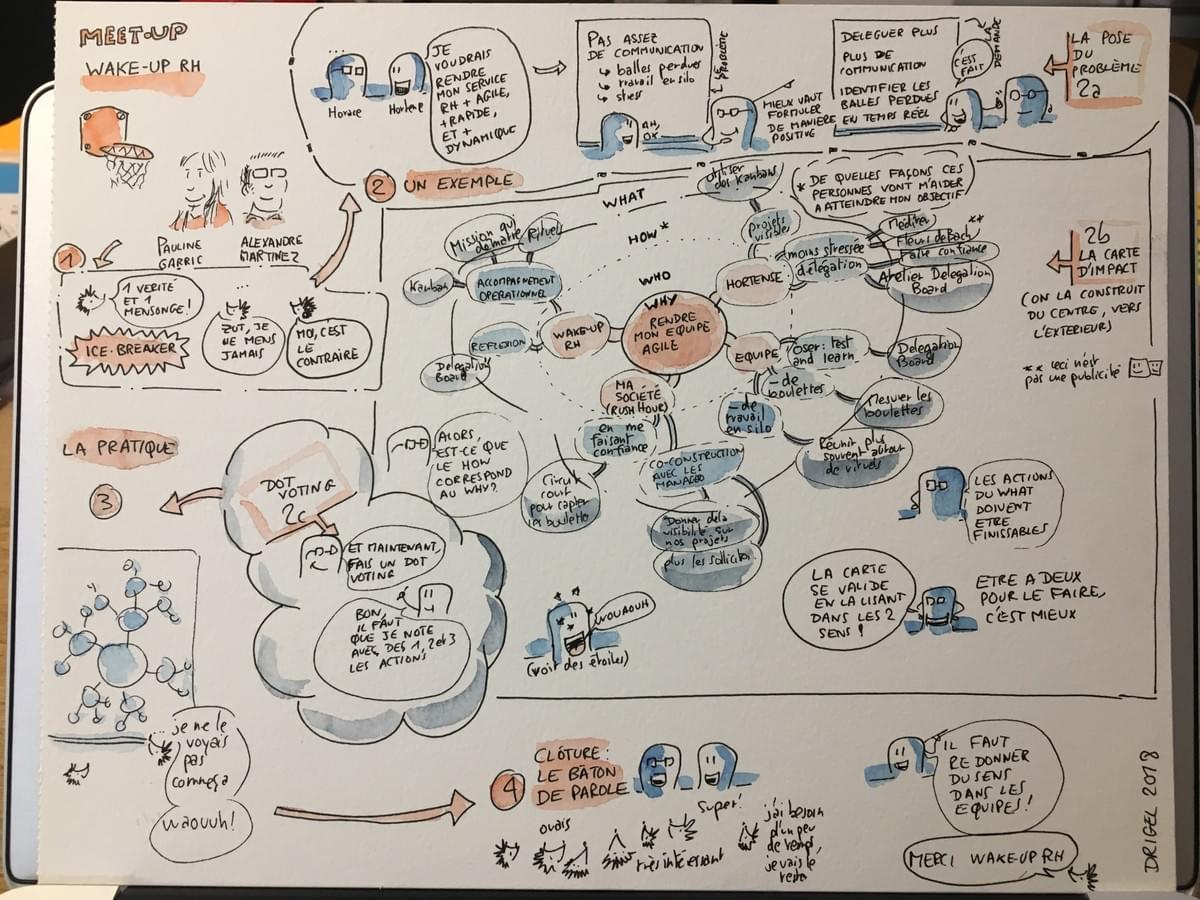 MEET-UP
WAKE-UP RH
PAULINE
GARRIC
ALEXANDRE
MARTINEZ
1
1 VERITÉ
ET 1
MENSONGE!
ICE-BREAKER
ZUT, JE
NE MENS
JAMAIS
MOI, C'EST
LE
CONTRAIRE
2 UN EXEMPLE
...
Horace
Hortense
JE
VOUDRAIS
RENDRE
MON SERVICE
RH + AGILE,
+ RAPIDE,
ET +
DYNAMIQUE
PAS ASSEZ
DE COMMUNICATION
balles perdues
travail en silo
stress
LE PROBLÈME
AH,
OK
MIEUX VAUT
FORMULER
DE MANIERE
POSITIVE
DELEGUER PLUS
PLUS DE
COMMUNICATION
IDENTIFIER LES
BALLES PERDUES
EN TEMPS RÉEL
LA
DEMANDE
C'EST
FAIT
LA POSE
DU
PROBLÈME
2a
WHAT
HOW*
WHO
WHY
RENDRE
MON EQUIPE
AGILE
* DE QUELLES FAÇONS CES
PERSONNES VONT M'AIDER
A ATTEINDRE MON OBJECTIF
Utiliser
des Kanbans
projets
visibles
HORTENSE
moins stressée
délégation
Méditer
**
Fleurs de Bach
Faire confiance
Atelier Delegation
Board
Mission qui
démarre
Rituels
ACCOMPAGNEMENT
OPERATIONNEL
Kanban
WAKE-UP
RH
REFLEXION
Delegation
Board
EQUIPE
oser: test
and learn
Delegation
Board
- de
boulettes
Mesurer les
boulettes
- de
travail
en silo
Réunir plus
souvent autour
de rituels
MA
SOCIÉTÉ
(RUSH HOUR)
en me
faisant
confiance
Circuit
court
pour capter
les boulettes
CO-CONSTRUCTION
AVEC LES
MANAGERS
Donner de la
visibilité sur
nos projets
plus les solliciter
2b
LA CARTE
D'IMPACT
(ON LA CONSTRUIT
DU CENTRE, VERS
L'EXTERIEUR)
** ceci n'est
pas une publicité
LES ACTIONS
DU WHAT
DOIVENT
ETRE
FINISSABLES
LA CARTE
SE VALIDE
EN LA LISANT
DANS LES 2
SENS!
ETRE A DEUX
POUR LE FAIRE,
C'EST MIEUX
WOUAOUH
(voit des étoiles)
ALORS,
EST-CE QUE
LE HOW
CORRESPOND
AU WHY?
DOT
VOTING
2c
ET MAINTENANT,
FAIS UN DOT
VOTING
BON,
IL FAUT
QUE JE NOTE
AVEC DES 1, 2 et 3
LES ACTIONS
LA PRATIQUE
3
...je ne le
voyais
pas
comme ça
waouuh!
4
CLÔTURE:
LE BÂTON
DE PAROLE
ouais
super!
très intéressant
j'ai besoin
d'un peu
de temps,
je vais le
refaire
IL FAUT
REDONNER
DU SENS
DANS LES
EQUIPES!
MERCI WAKE-UP RH
DRIGEL 2018